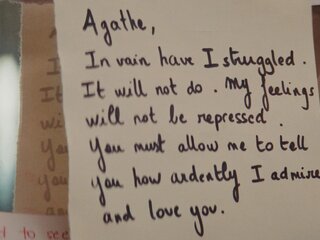 Agathe,
In vain have I struggled.
It will not do. My feelings
will not be repressed.
You must allow me to tell
you how ardently I admire
and love you.
to see